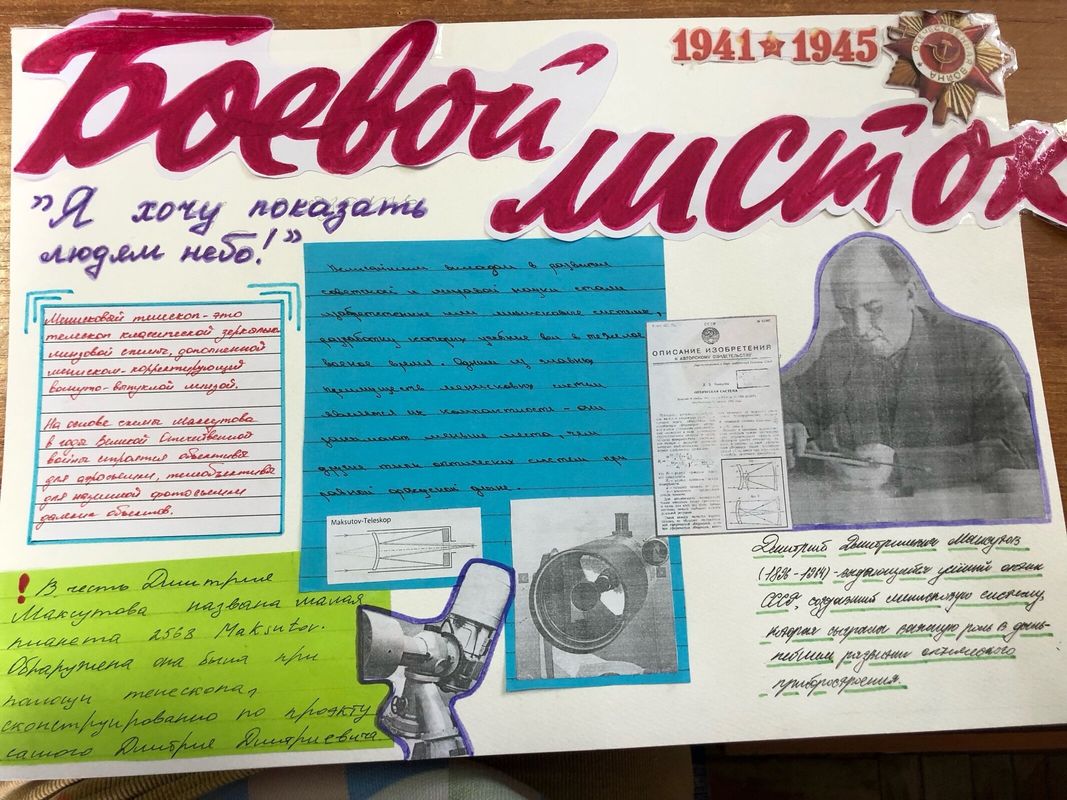 Боевой
листок
1941 1945
ОТЕЧЕСТВЕННАЯ ВОЙНА
"Я хочу показать
людям небо!"
Менисковый телескоп - это
телескоп классической зеркально
линзовой схемы, дополненной
мениском - корректирующей
вогнуто-выпуклой линзой.
На основе схемы Максутова
в годы Великой Отечественной
войны строятся объективы
для аэросъемки, телеобъективы
для наземной фотосъемки
далеких объектов.
Важнейшим вкладом в развитие
советской и мировой науки стали
изобретенные им менисковые системы,
разработку которых учёный вел в тяжелое
военое время. Одним из главных
преимуществ менисковых систем
является их компактность - они
занимают меньше места, чем
другие типы оптических систем при
равной фокусной длине.
СССР
ОПИСАНИЕ ИЗОБРЕТЕНИЯ
К АВТОРСКОМУ СВИДЕТЕЛЬСТВУ
Д. Д. Максутов
ОПТИЧЕСКАЯ СИСТЕМА
Maksutov-Teleskop
! В честь Дмитрия
Максутова названа малая
планета 2568 Maksutov.
Обнаружена она была при
помощи телескопа,
сконструированно по проэкту
самого Дмитрия Дмитриевича
Дмитрий Дмитриевич Максутов
(1896-1964) - выдающийся учёный оптик
СССР, создавший менисковую систему,
которая сыграла важную роль в даль-
нейшем развитии оптического
приборостроения.